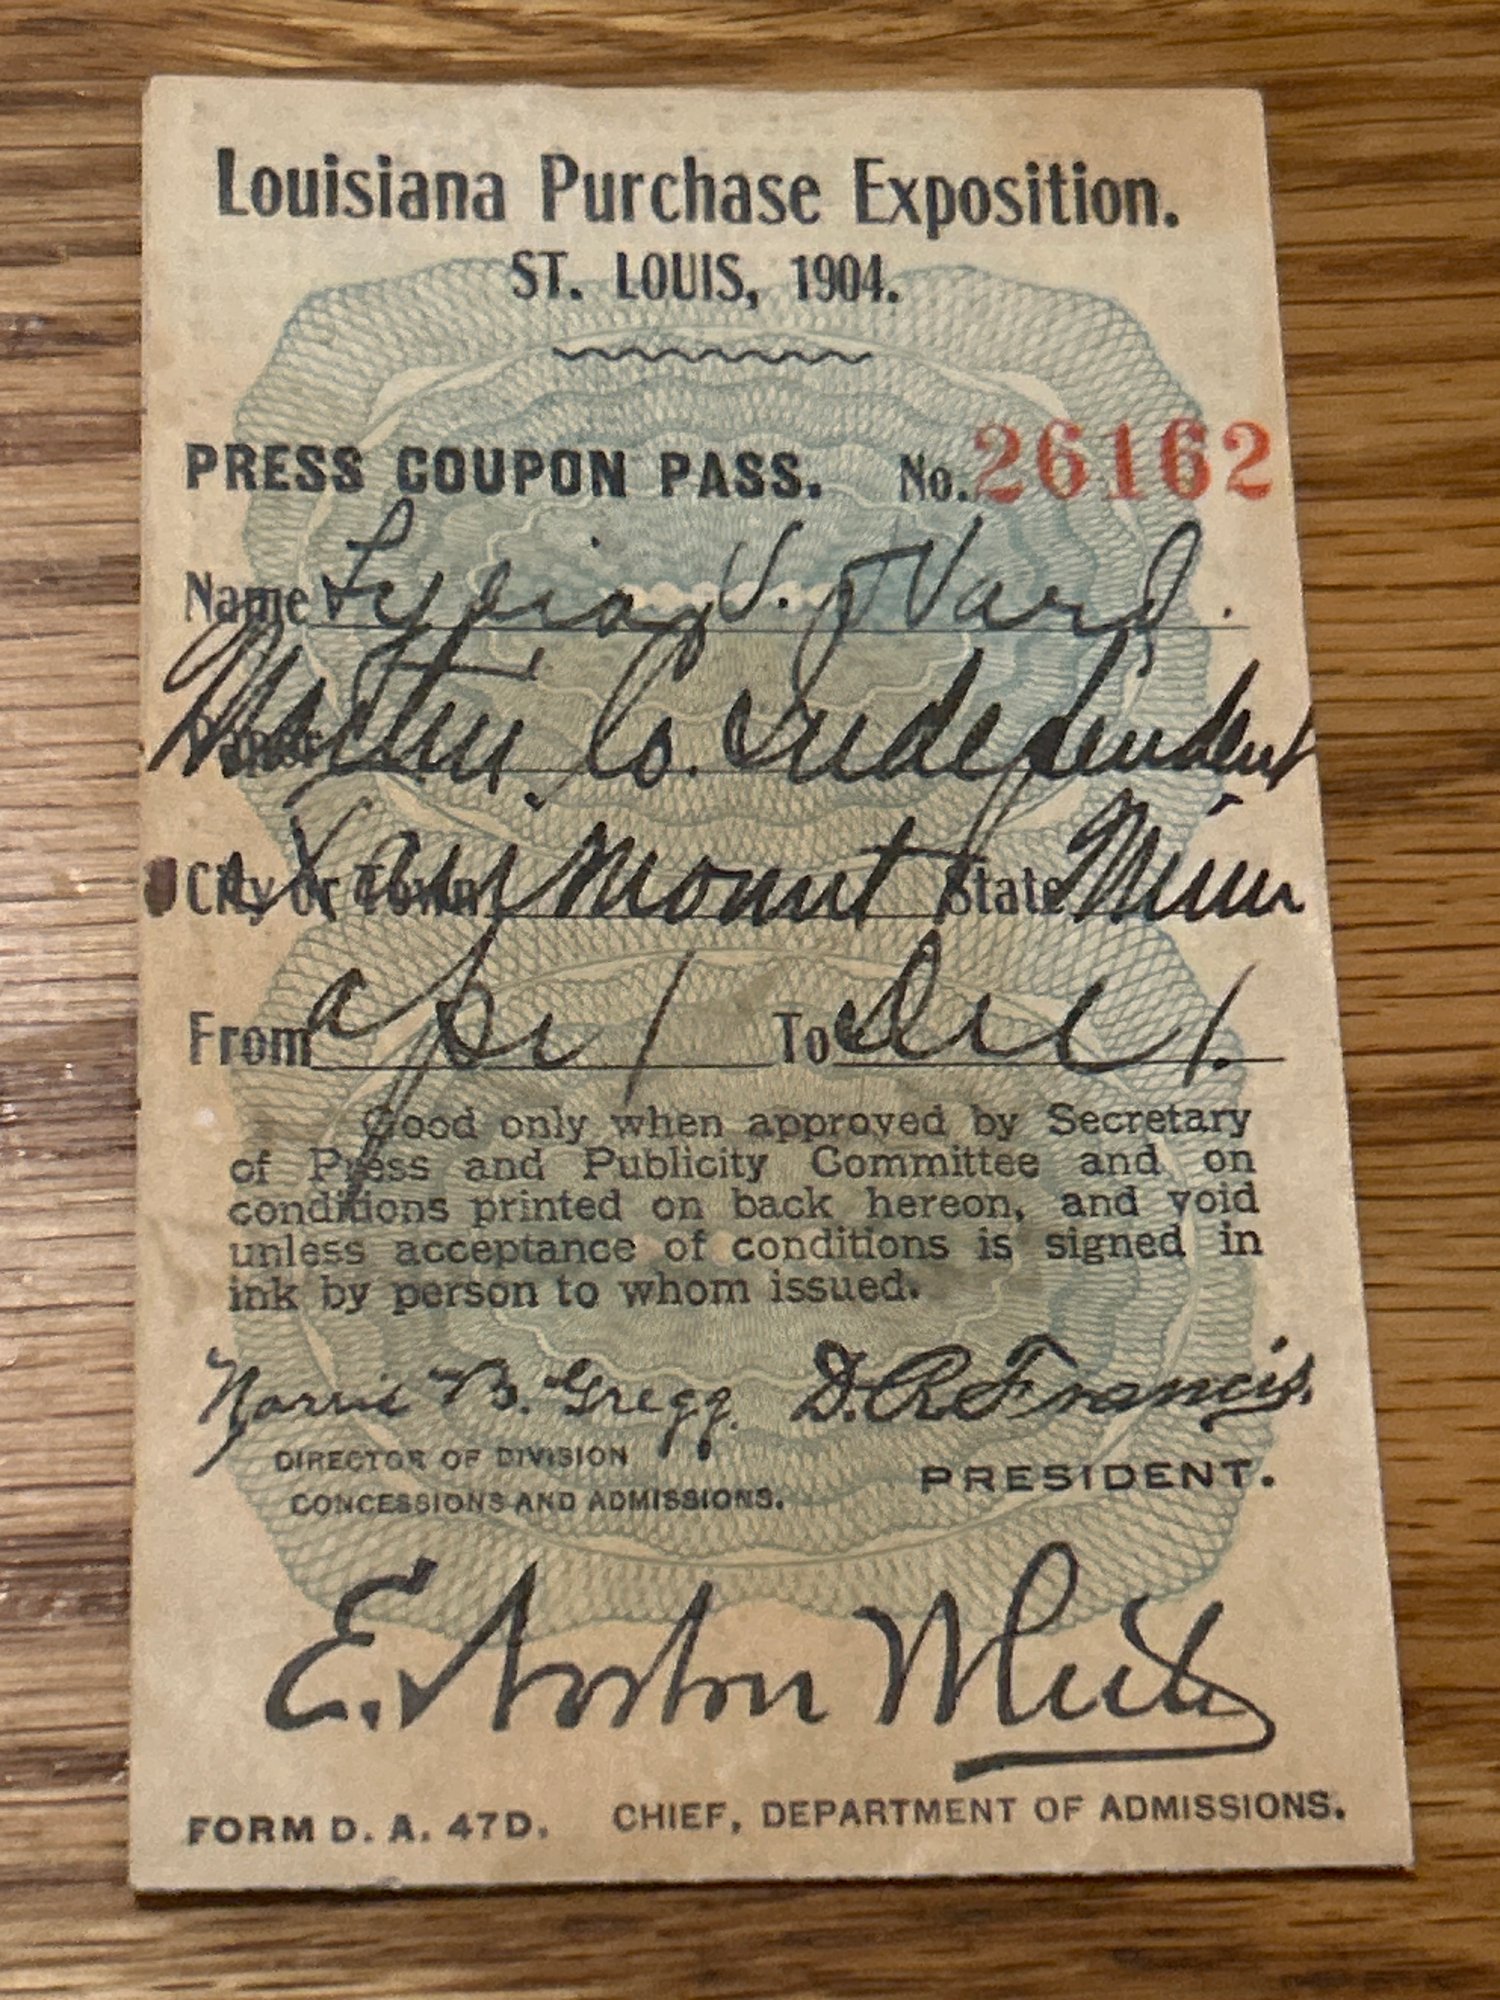 Louisiana Purchase Exposition.
ST. LOUIS, 1904.
PRESS COUPON PASS. No. 26162
Name Lydia V. Ward.
Paper Martin Co. Independent
City or Town Fairmount State Minn
From Apr 1 To Dec 1.
Good only when approved by Secretary
of Press and Publicity Committee and on
conditions printed on back hereon, and void
unless acceptance of conditions is signed in
ink by person to whom issued.
Norris B. Gregg. D. R. Francis.
DIRECTOR OF DIVISION
CONCESSIONS AND ADMISSIONS. PRESIDENT.
E. Norton White
FORM D. A. 47D. CHIEF, DEPARTMENT OF ADMISSIONS.